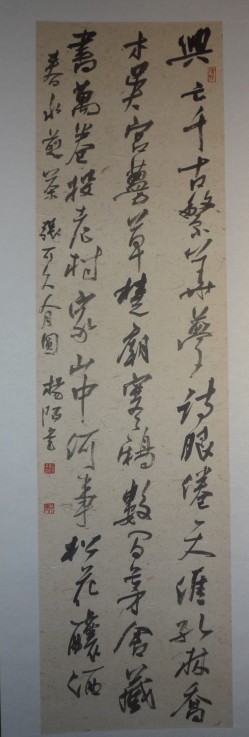 興亡千古繁華夢詩眼倦天涯孔林喬
木吳宮蔓草楚廟寒鴉數间茅舍藏
書萬卷投老村家山中何事松花釀酒
春水煎茶 張可久人月圓 楊